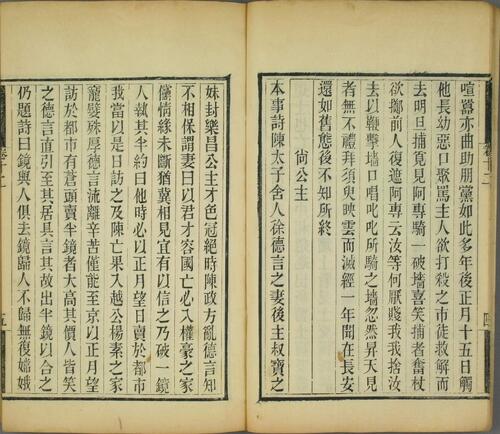 喧囂亦曲助朋黨如此多年後正月十五日觸
他長幼惡口聚罵主人欲打殺之市徒救解而
去明旦捕覓見阿專騎一破墻喜笑捕者奮杖
欲擲前人復遮阿專云汝等何厭賤我我捨汝
去以鞭擊墻口唱叱叱所騎之墻忽然昇天見
者無不禮拜須臾映雲而滅經一年聞在長安
還如舊態後不知所終
尚公主
本事詩陳太子舍人徐德言之妻後主叔寶之
四
妹封樂昌公主才色冠絕時陳政方亂德言知
不相保謂妻曰以君才容國亡必入權豪之家
儻情緣未斷猶冀相見宜有以信之乃破一鏡
人執其半約曰他時必以正月望日賣於都市
我當以是日訪之及陳亡果入越公楊素之家
寵嬖殊厚德言流離辛苦僅能至京以正月望
訪於都市有蒼頭賣半鏡者大高其價人皆笑
之德言直引至其居具言其故出半鏡以合之
仍題詩曰鏡與人俱去鏡歸人不歸無復嫦娥
五